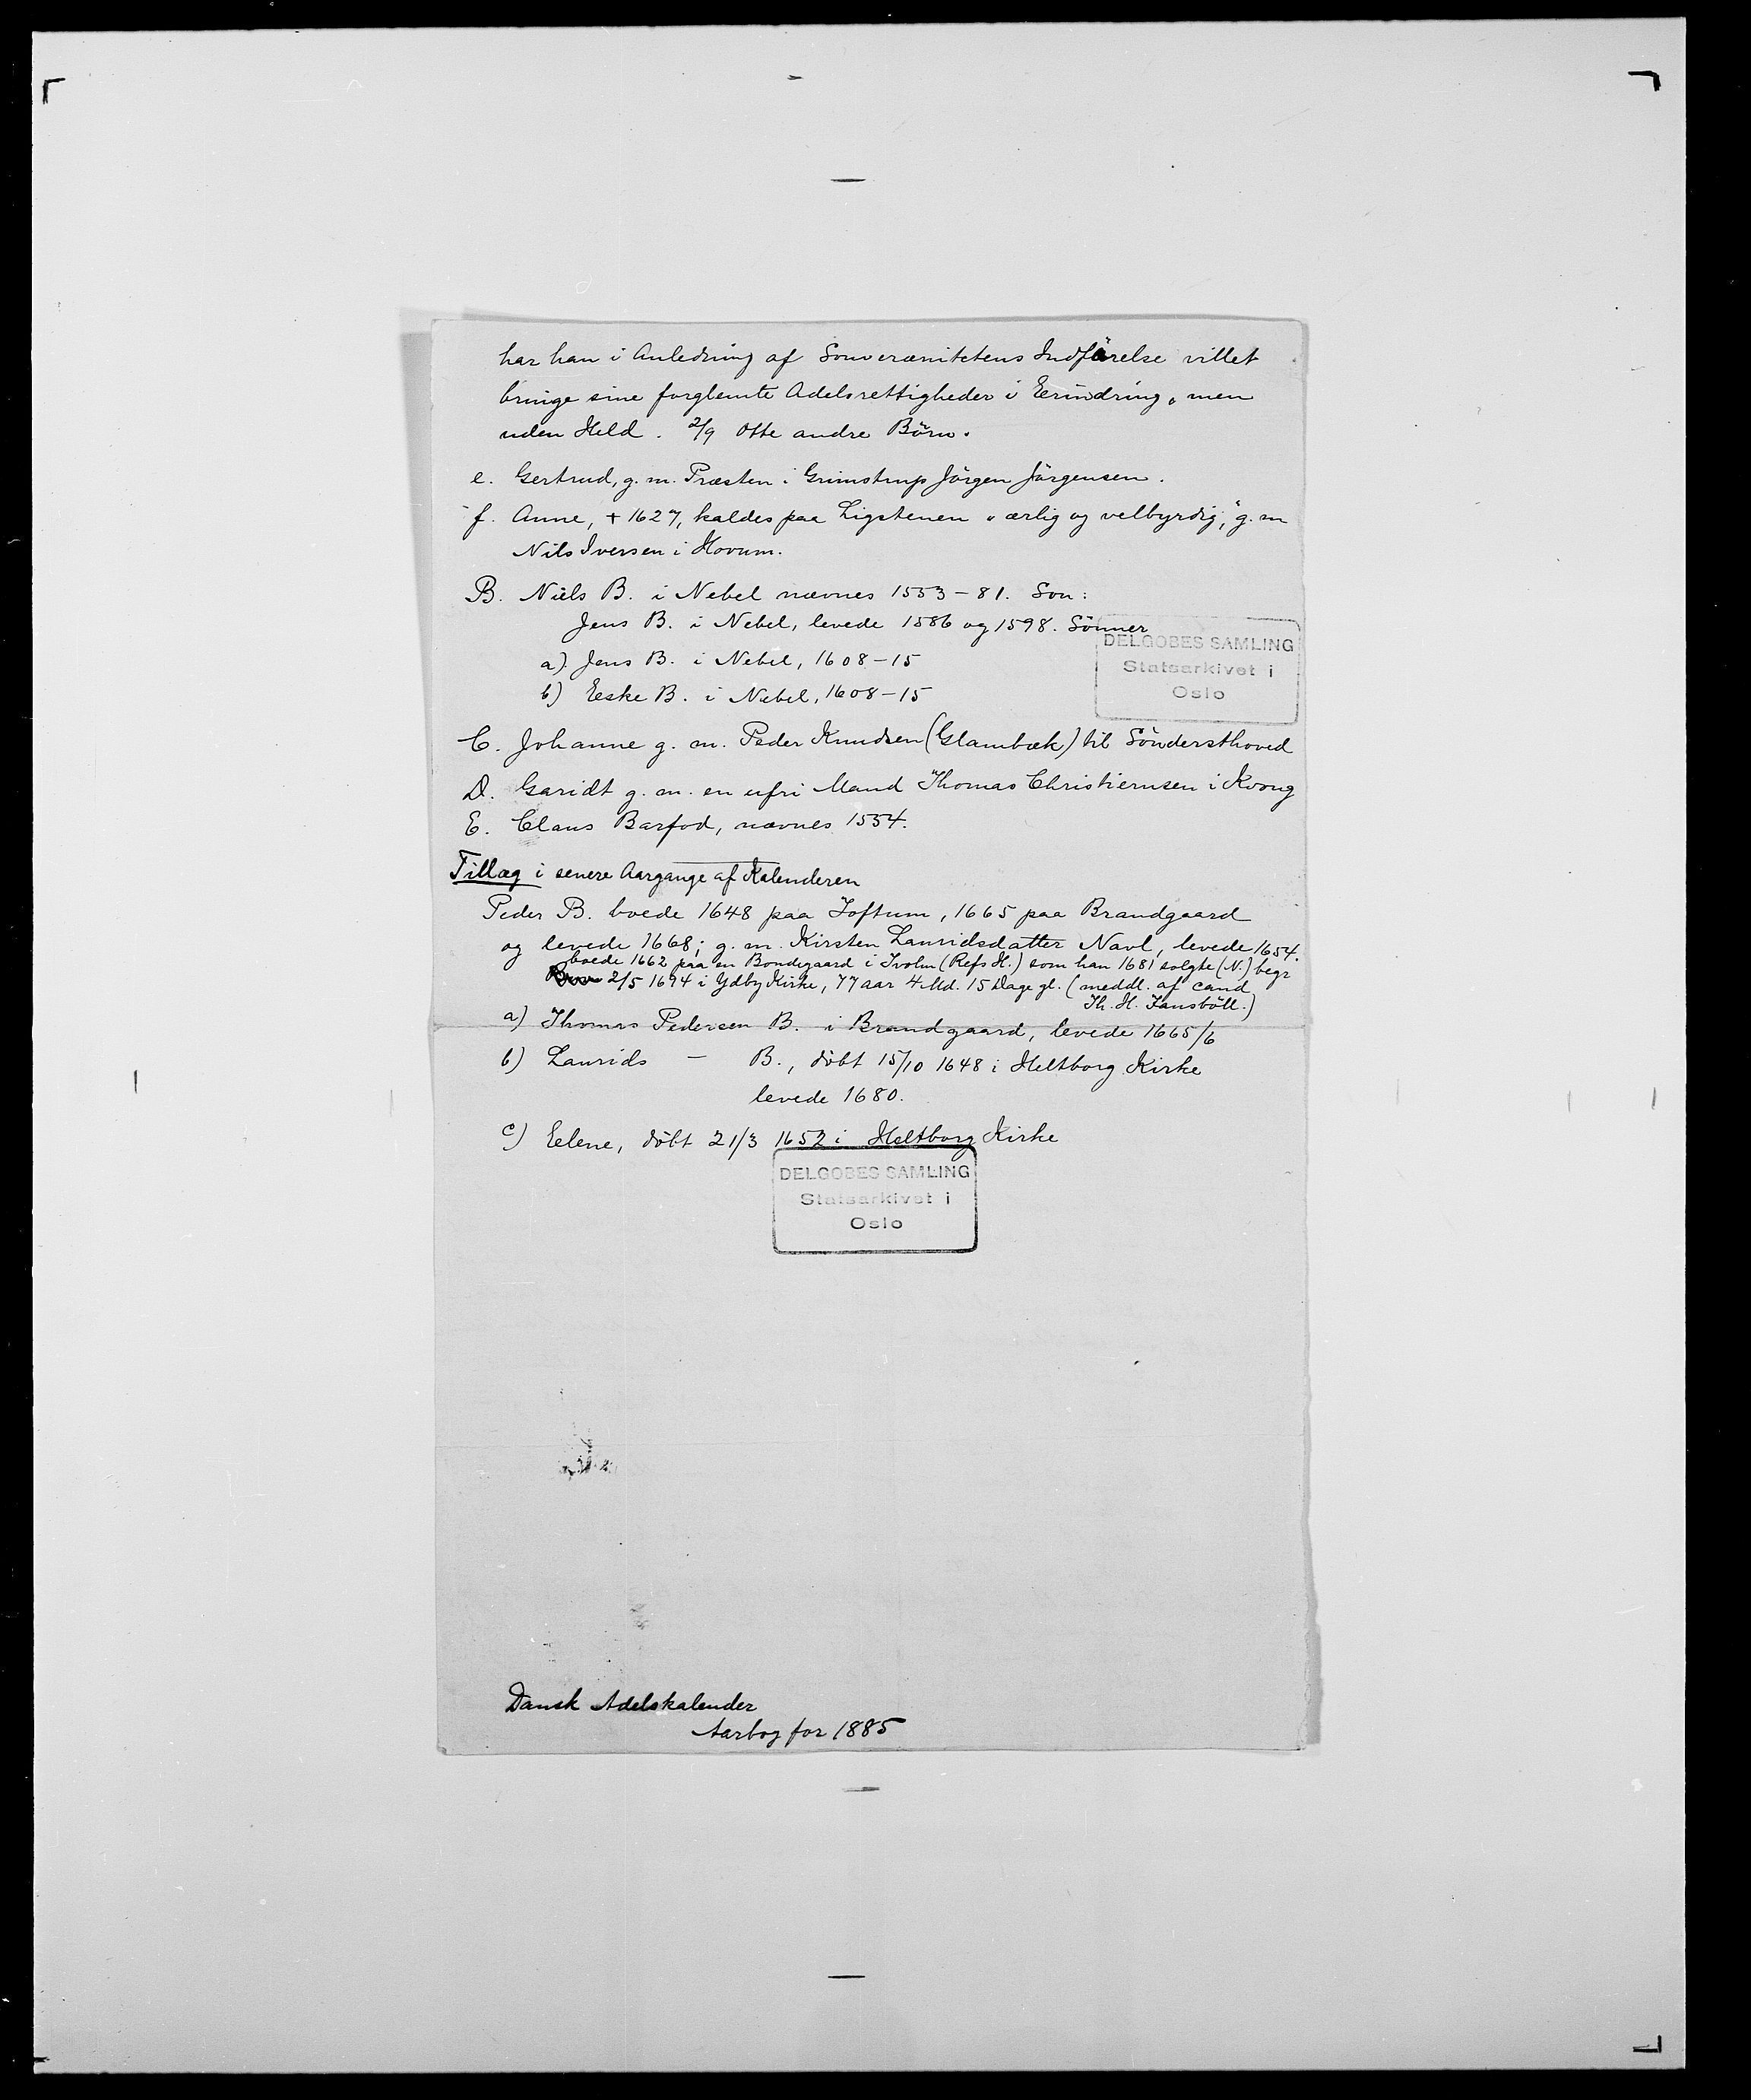 har han i Anledning af Souverænitetens Indförelse villet
bringe sine forglemte Adelsrettigheder i Erindring, men
uden Held. 2/9 Otte andre Börn.
e. Gertrud, g. m. Præsten i Grimstrup Jörgen Jörgensen.
f. Anne, + 1627, kaldes paa Ligstenen "ærlig og velbyrdig," g. m
Nils Iversen i Hovum.
B. Niels B. i Nebel nævnes 1553-81. Sön:
Jens B. i Nebel, levede 1586 og 1598. Sönner
DELGOBES SAMLING
Statsarkivet i
Oslo
a) Jens B. i Nebel, 1608-15
b) Eeske B. i Nebel, 1608-15
C. Johanne g. m. Peder Knudsen (Glambæk) til Söndersthoved
D. Garidt g. m. en ufri Mand Thomas Christiernsen i Kvong
E. Claus Barfod, nævnes 1554.
Tillæg i senere Aargange af Kalenderen
Peder B. boede 1648 paa Toftum, 1665 paa Brandgaard
og levede 1668; g. m. Kirsten Lauridsdatter Navl, levede 1654.
boede 1662 paa en Bondegaard i Ivolm (Refs H.) som han 1681 solgte (N.) begr
2/5 1694 i Ydby Kirke, 77 aar 4 Md. 15 Dage gl. (meddl. af cand
Th. H.
a) Thomas Pedersen B. i Brandgaard, levede 1665/6
b) Laurids — B., döbt 15/10 1648 i Heltborg Kirke
levede 1680.
c) Eelene, döbt 21/3 1652 i Heltborg Kirke
DELGOBES SAMLING
Statsarkivet i
Oslo
Dansk Adelskalender
Aarbog for 1885